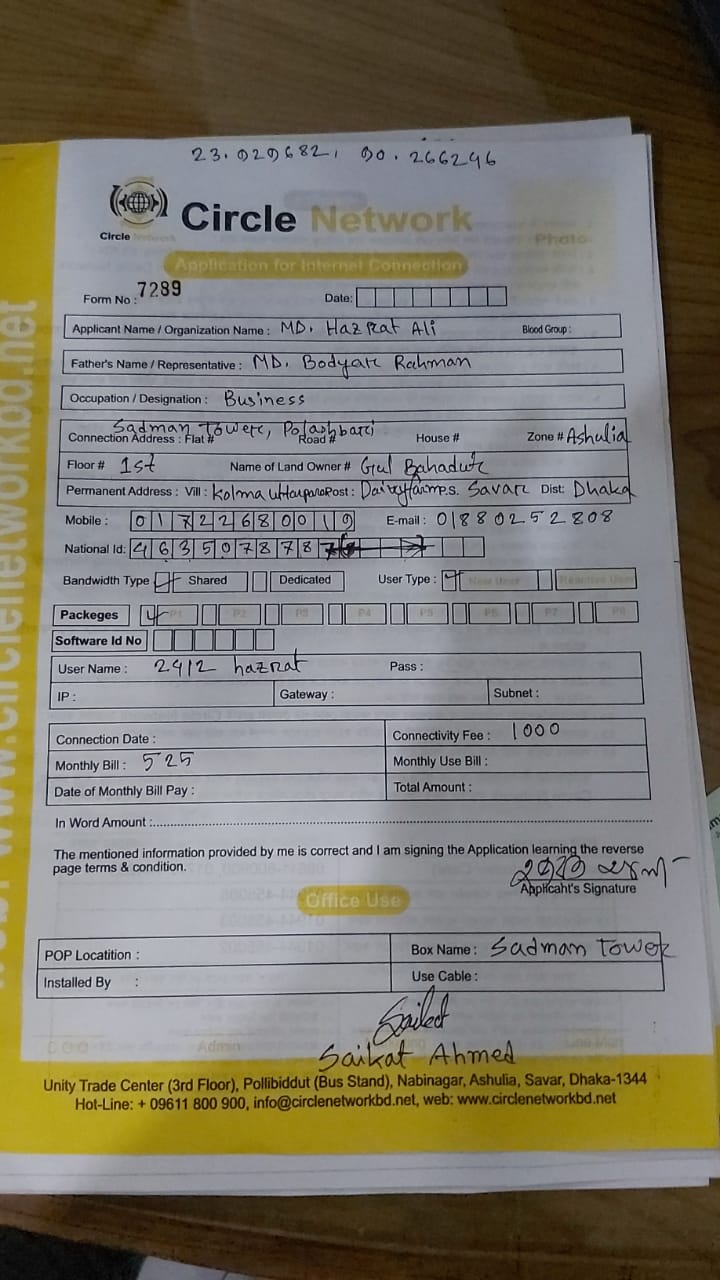 23.029682, 90.266246
Circle Network
Circle Network
Photo
Application for Internet Connection
Form No : 7289 Date:
Applicant Name / Organization Name : MD. Hazrat Ali Blood Group :
Father's Name / Representative : MD. Bodyar Rahman
Occupation / Designation : Business
Sadman Tower, Polashbari
Connection Address : Flat # Road # House # Zone # Ashulia
Floor # 1st Name of Land Owner # Gul Bahadur
Permanent Address : Vill : Kolma Uttarpara Post : Dairyfarm P.S. Savar Dist: Dhaka
Mobile : 01722680019 E-mail : 01880252808
National Id: 4635078787
Bandwidth Type Shared Dedicated User Type : New User Reactive User
Packeges P1 P2 P3 P4 P5 P6 P7 P8
Software Id No
User Name : 2412 hazrat Pass :
IP : Gateway : Subnet :
Connection Date : Connectivity Fee : 1000
Monthly Bill : 525 Monthly Use Bill :
Date of Monthly Bill Pay : Total Amount :
In Word Amount :
The mentioned information provided by me is correct and I am signing the Application learning the reverse
page terms & condition.
Applicaht's Signature
Office Use
POP Locatition : Box Name : Sadman Tower
Installed By : Use Cable :
Saikat
Saikat Ahmed
Admin
Unity Trade Center (3rd Floor), Pollibiddut (Bus Stand), Nabinagar, Ashulia, Savar, Dhaka-1344
Hot-Line: + 09611 800 900, info@circlenetworkbd.net, web: www.circlenetworkbd.net
www.circlenetworkbd.net